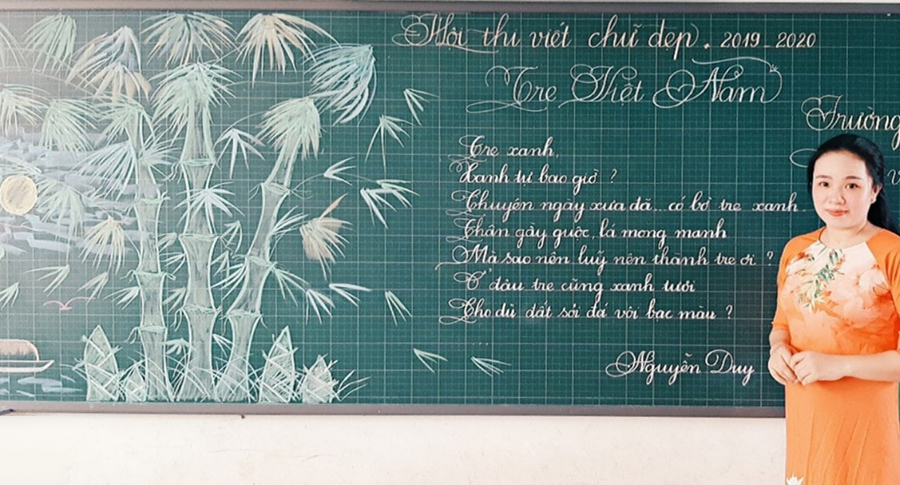 Hội thi viết chữ đẹp. 2019-2020
Tre Việt Nam
Trường
Tre xanh,
Xanh tự bao giờ ?
Chuyện ngày xưa đã... có bờ tre xanh.
Thân gầy guộc, lá mong manh
Mà sao nên luỹ nên thành tre ơi ?
Ở đâu tre cũng xanh tươi
Cho dù đất sỏi đá vôi bạc màu ?
Nguyễn Duy